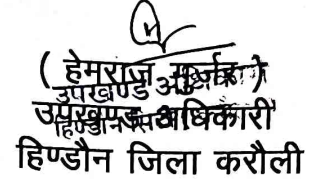 ( हेमराज गुर्जर )
उपखण्ड अधिकारी
उपखण्ड अधिकारी
हिण्डौन जिला करौली